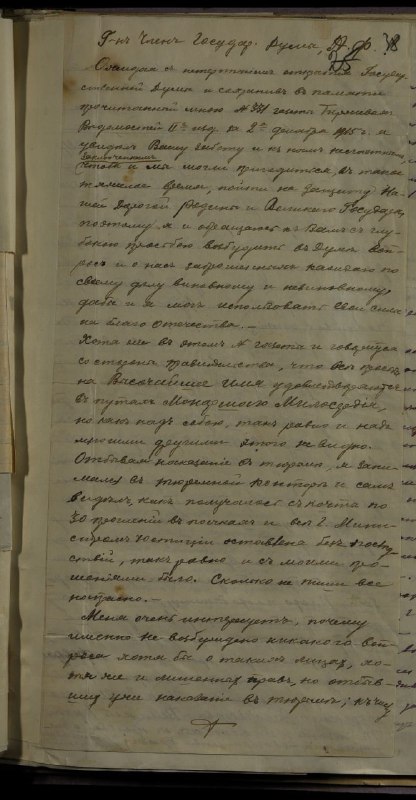 Г-нъ Членъ Государ. Думы, А. Ф.
Ожидая съ нетерпѣніемъ открытія Государ
ственной Думы и сохранивъ въ памяти
прочитанный мною № 331 газеты Биржевыхъ
Вѣдомостей IIое изд. за 2ое декабря 1915 г. и
увидалъ Вашу заботу и къ намъ несчастнымъ
заключеннымъ
и мы могли пригодиться въ такое
тяжелое время, пойти на защиту На-
шей дорогой Родины и Великаго Государя,
поэтому я и обращаюсь къ Вамъ съ глу-
бокою просьбою возбудить въ Думѣ воп-
росъ и о насъ
своему дѣлу виновному и невиновному
дабы и я могъ использовать свои силы
на благо отечества. —
Хотя и въ этомъ № газеты и говорится
со стороны правительства, что всѣ прось
на Высочайшее имя удовлетворяются
въ путяхъ Монаршаго Милосердія,
но какъ надъ собою, такъ равно и надъ
многими другими этого не видно.
Отбывая наказаніе въ тюрьмѣ, я зани
маюсь въ тюремной конторѣ и самъ
видѣлъ, какъ получаются съ почты по
30 прошеній и всѣ Г. Мини
стромъ Юстиціи оставлена безъ послѣд
ствій, такъ равно и съ моими про-
шеніями было. Сколько не пиши все
напрасно. —
Меня очень интересуетъ, почему
именно не возбуждено никакого воп-
роса хотя бы о такихъ лицахъ, хо-
тя же и лишенныхъ правъ, но отбыв-
шихъ уже наказаніе въ тюрьмѣ; къ чему